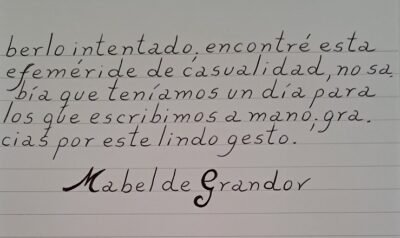 berlo intentado; encontré esta
efeméride de casualidad, no sa
bía que teníamos un día para
los que escribimos a mano; gra.
cias por este lindo gesto.
Mabel de Grandov